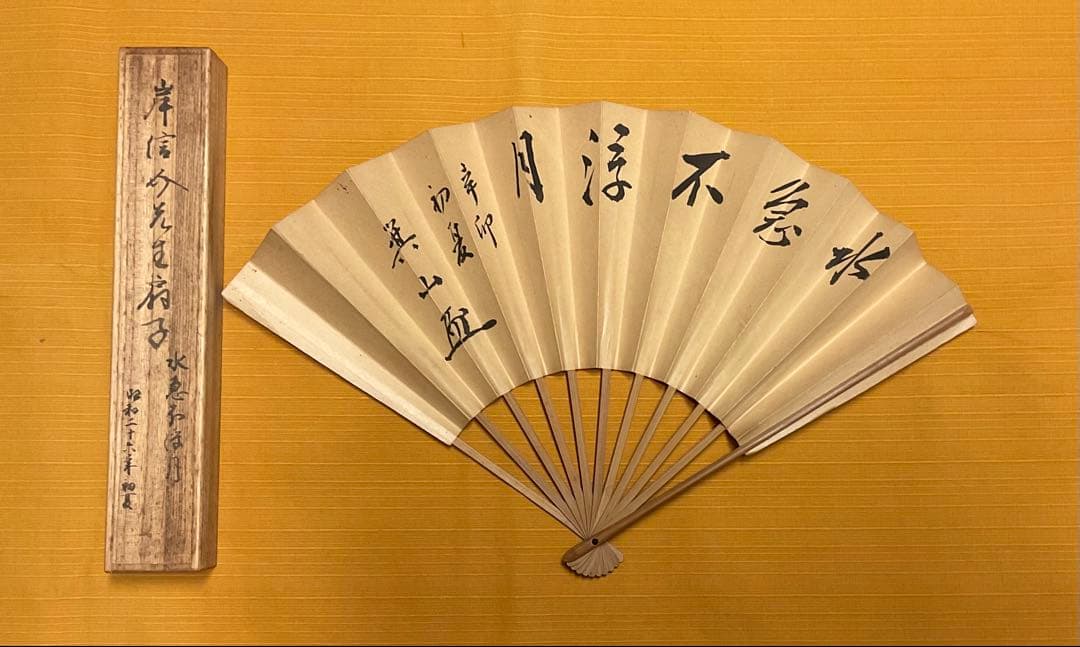 岸信介先生扇子
水急不浮月
昭和二十六年初夏
水急不浮月
辛卯
初夏
箕山